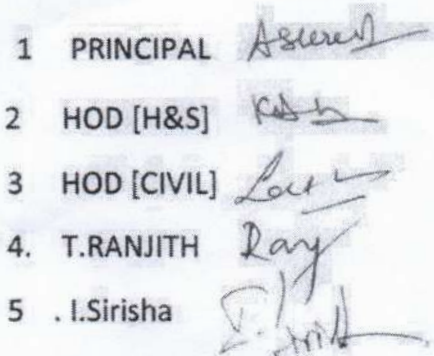 1 PRINCIPAL
2 HOD [H&S]
3 HOD [CIVIL]
4. T.RANJITH
5 . I.Sirisha